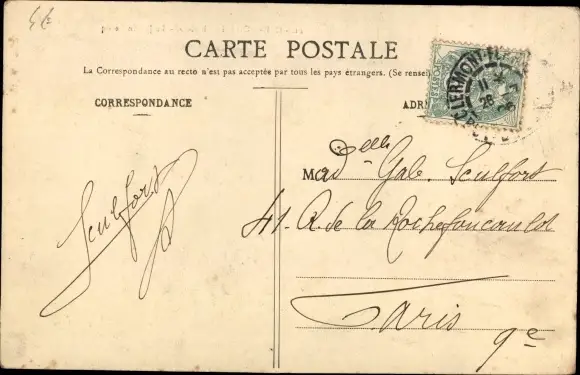 CARTE POSTALE
La Correspondance au recto n'est pas acceptée par tous les pays étrangers. (Se rensei
CORRESPONDANCE
ADR
CLERMONT-F
11
26
Madelle Gab. Sculfort
41. R. de la Rochefoucaulot
Paris
9e
Sculfort